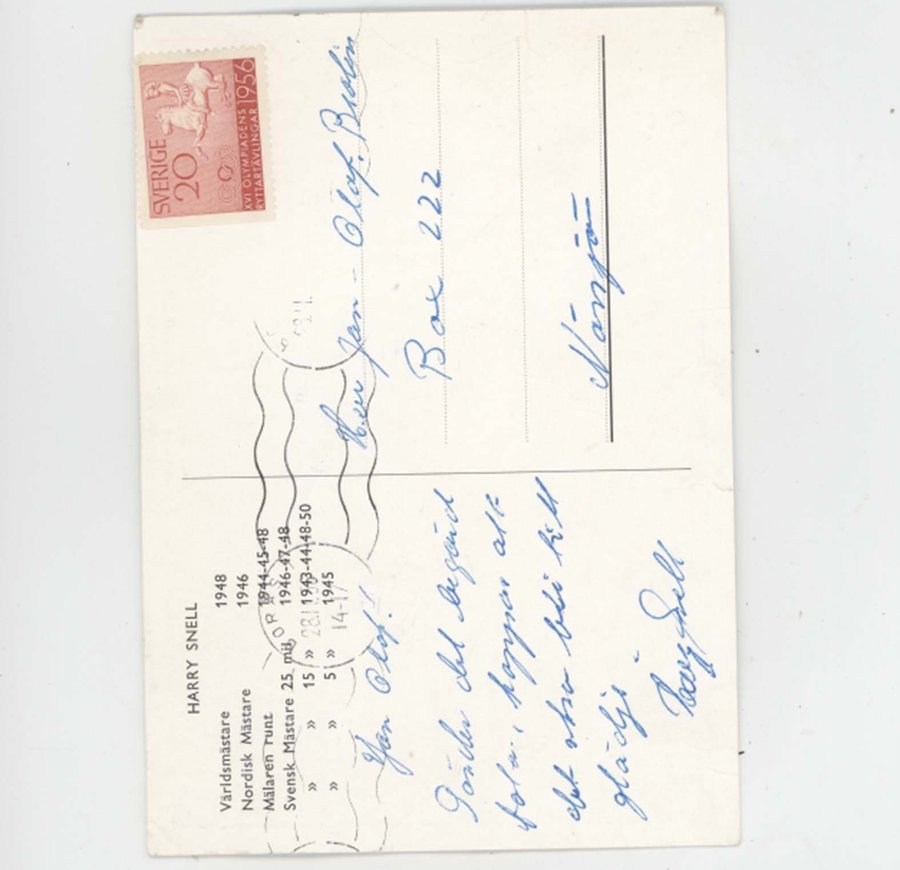 HARRY SNELL
Världsmästare 1948
Nordisk Mästare 1946
Mälaren runt 1944-45-48
Svensk Mästare 25 mil 1946-47-48
» » 15 » 1943-44-48-50
» » 5 » 1945
Jan Olof!
Sänder det begärd
foto, hoppas att
det ska bli till
glädje
Harry Snell
SVERIGE
20
XVI OLYMPIADENS
RYTTARTÄVLINGAR
1956
14-17
Herr Jan-Olof. Brolin
Box 222